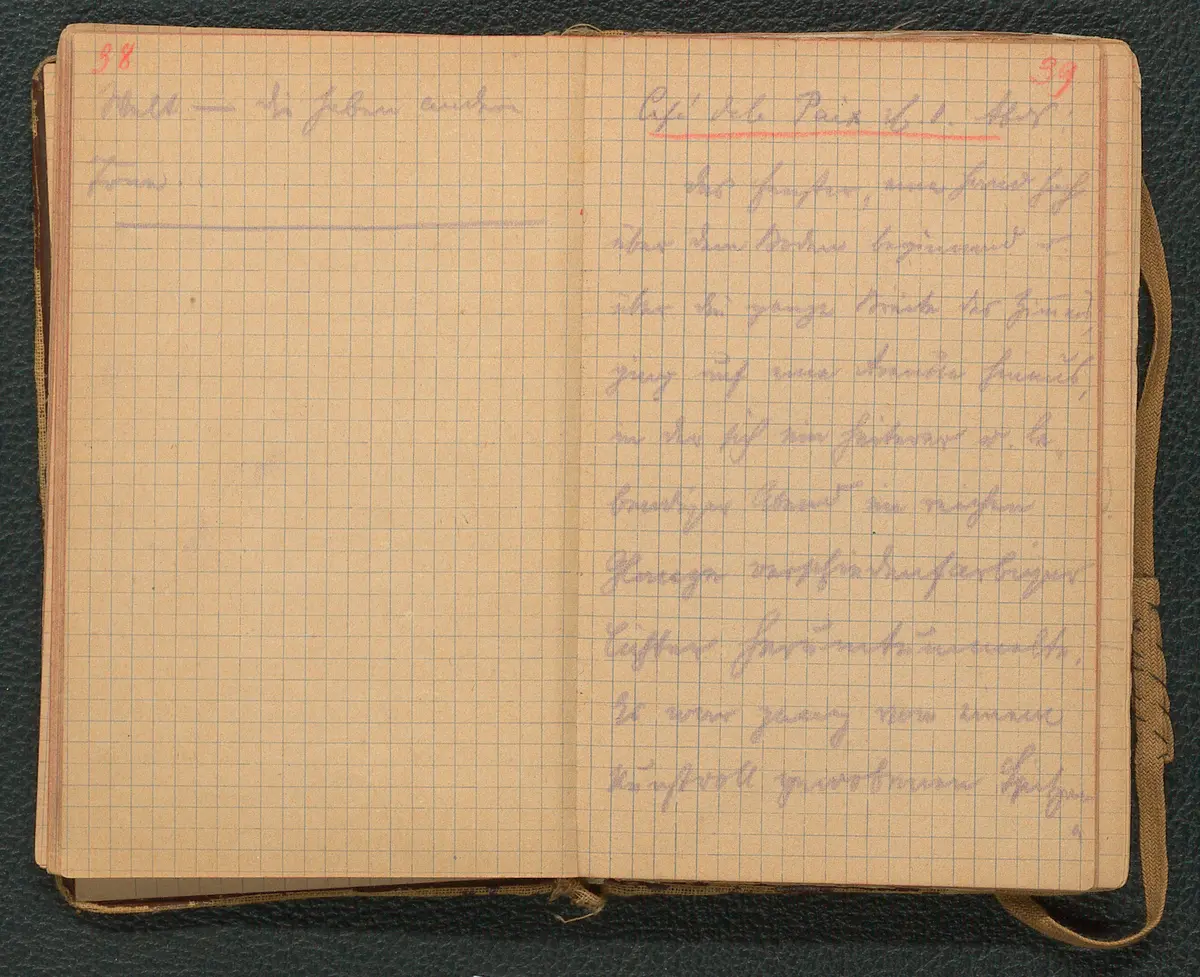 38
Welt — die haben andere
Töne.
39
Café de la Paix 1. Abds:
Das Fenster, eine Hand hoch
über dem Boden beginnend u.
über die ganze Breite des Zimmers,
ging auf eine Avenue hinaus,
in der sich ein heiterer u. le-
bendiger Abend im reichen
Glanze verschiedenfarbiger
Lichter herumtummelte.
Es war ganz von einem
kunstvoll gewobenen Spitzen